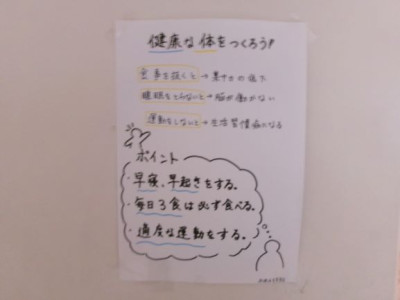 健康な体をつくろう!
食事を抜くと→集中力の低下
睡眠をとらないと→脳が働かない
運動をしないと→生活習慣病になる
ポイント
・早寝、早起きをする。
・毎日3食は必ず食べる。
・適度な運動をする。